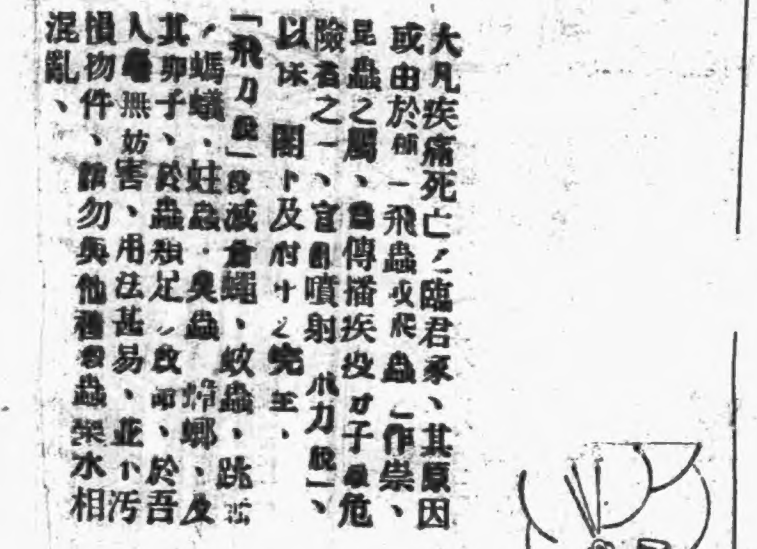 大凡疾痛死亡之臨君家、其原因
或由於 一飛蟲或爬蟲 作祟、
昆蟲之屬、爲傳播疾疫 子最危
險者之一、宜用噴射 力脫」、
以 闔 及 之 
「飛力脫」 滅倉蠅、蚊蟲、跳
、螞蟻、蛀蟲、臭蟲 螂、及
其卵子、於蟲類足 於吾
人 無妨害、用法甚易、並不汚
損物件、 勿與他種殺蟲藥水相
混亂、